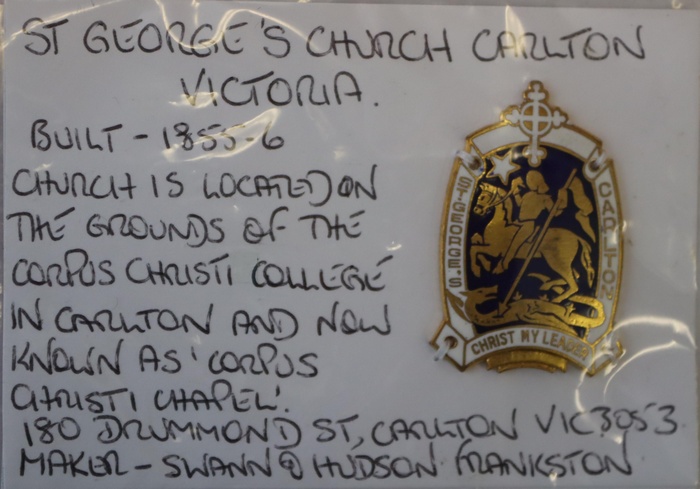 ST GEORGE'S CHURCH CARLTON
VICTORIA.
BUILT - 1855-6
CHURCH IS LOCATED ON
THE GROUNDS OF THE
CORPUS CHRISTI COLLEGE
IN CARLTON AND NOW
KNOWN AS 'CORPUS
CHRISTI CHAPEL'.
180 DRUMMOND ST, CARLTON VIC 3053
MAKER - SWANN & HUDSON FRANKSTON
ST. GEORGE'S
CARLTON
CHRIST MY LEADER